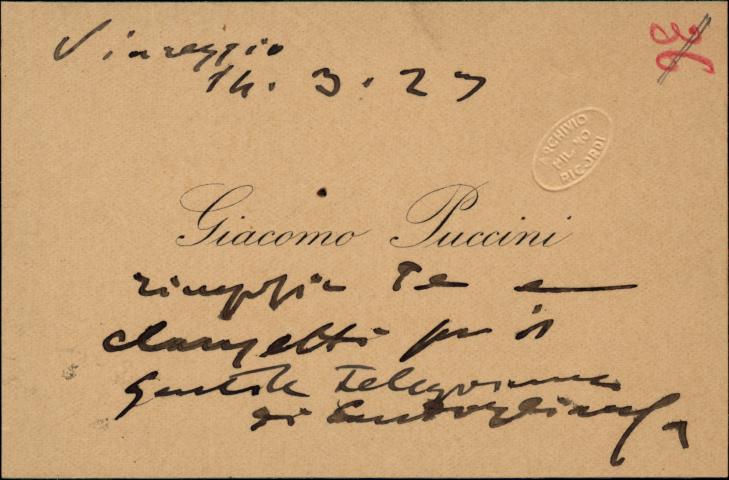 Viareggio
14. 3. 23
ARCHIVIO
MILANO
RICORDI
Giacomo Puccini
ringrazia Te e
Clausetti per il
gentile telegramma
di